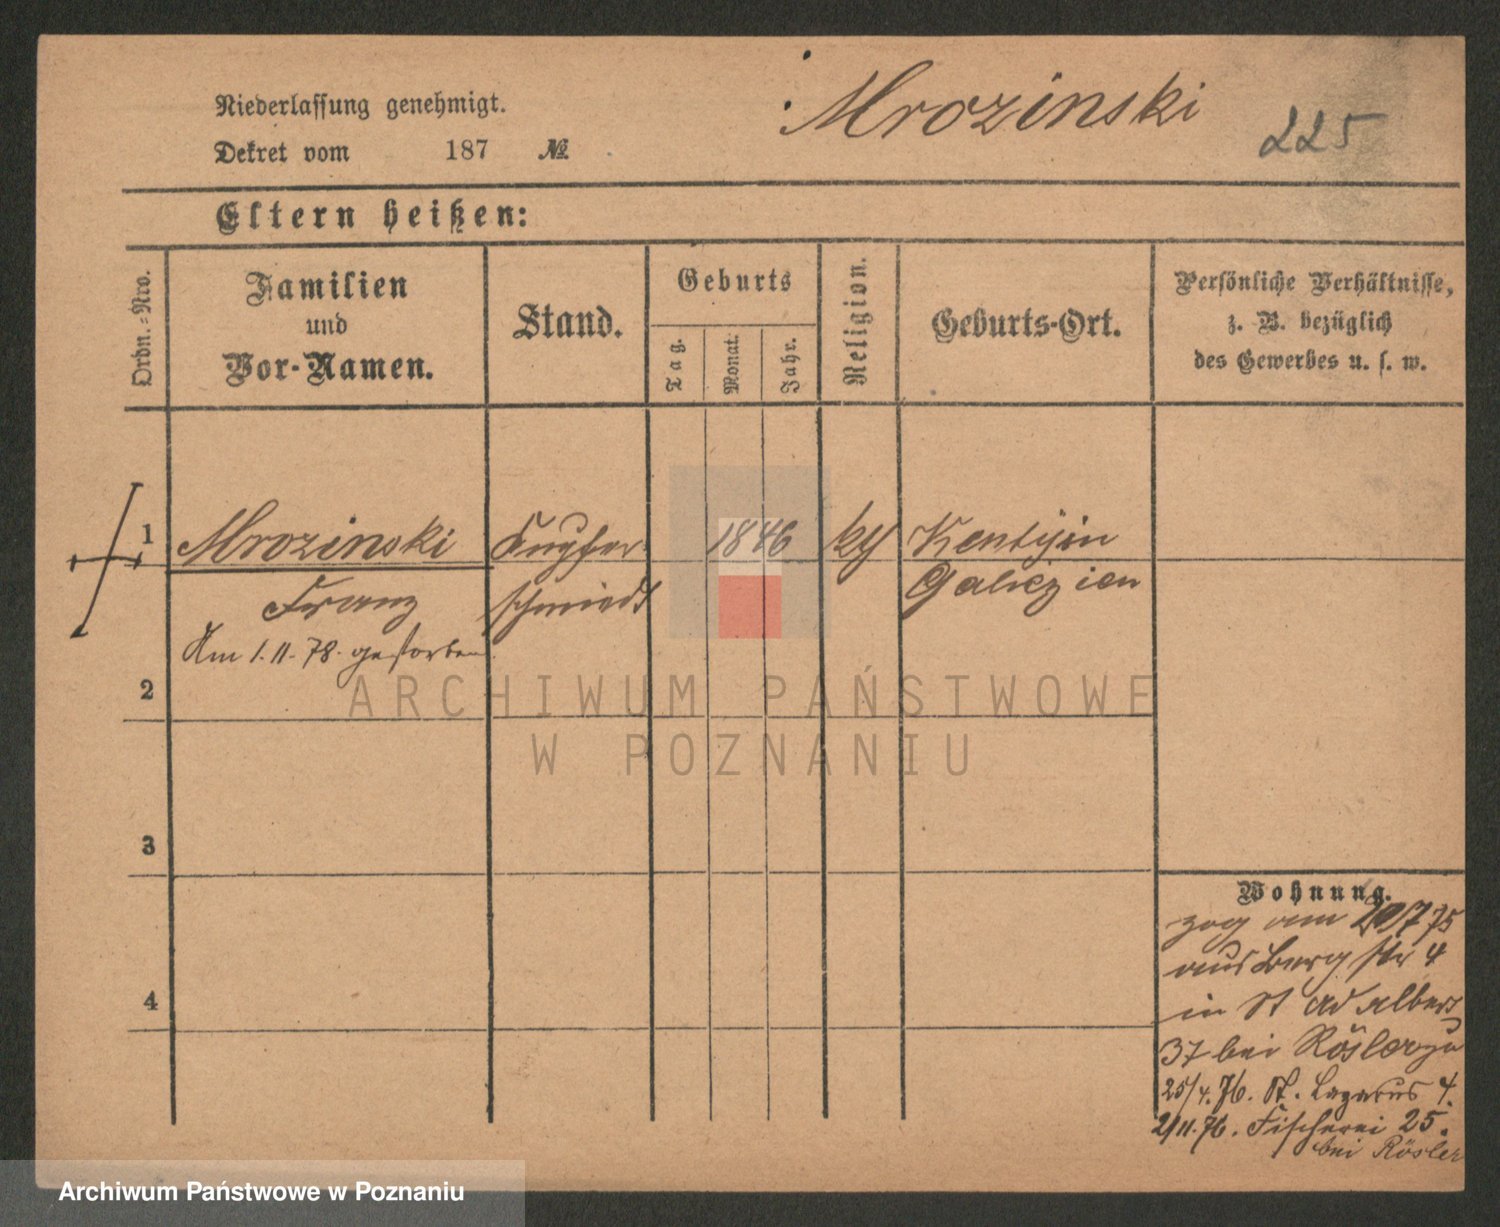 Mrozinski
225
Niederlassung genehmigt.
Dekret vom 187 №
Eltern heißen:
Ordn.-Nro.
Familien
und
Vor-Namen.
Stand.
Geburts
Tag.
Monat.
Jahr.
Religion.
Geburts-Ort.
Persönliche Verhältnisse,
z. B. bezüglich
des Gewerbes u. s. w.
1
Mrozinski
Kupfer
1846
Franz
schmiedt
Galiczien
Am 1.11.78. gestorben
2
3
4
Wohnung.
zog am 75
aus Bergstr 4
in St Adalbert
37 bei Rösler zu
25/4.76. St. Lazarus 4.
2/11.76. Fischerei 25.
bei Rösler
ARCHIWUM PAŃSTWOWE
W POZNANIU
Archiwum Państwowe w Poznaniu